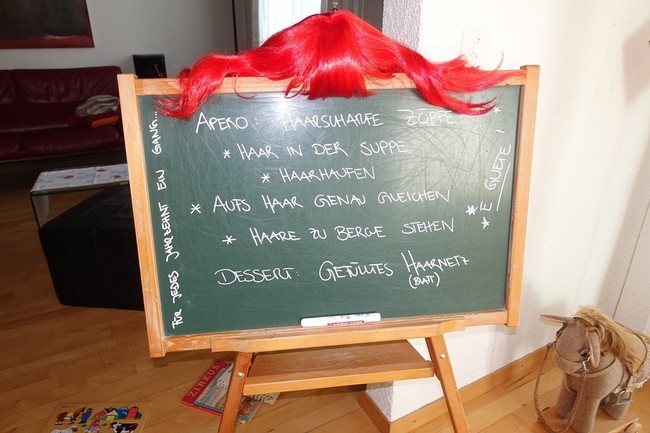 APERO: HAARSCHARFE ZÖPFE
* HAAR IN DER SUPPE
* HAARHAUFEN
* AUFS HAAR GENAU GLEICHEN
* HAARE ZU BERGE STEHEN
DESSERT: GEFÜLLTES HAARNETZ
(BLATT)
FÜR JEDES JAHRZEHNT EIN GANG...
* E GUETE! *
ZIRKUS